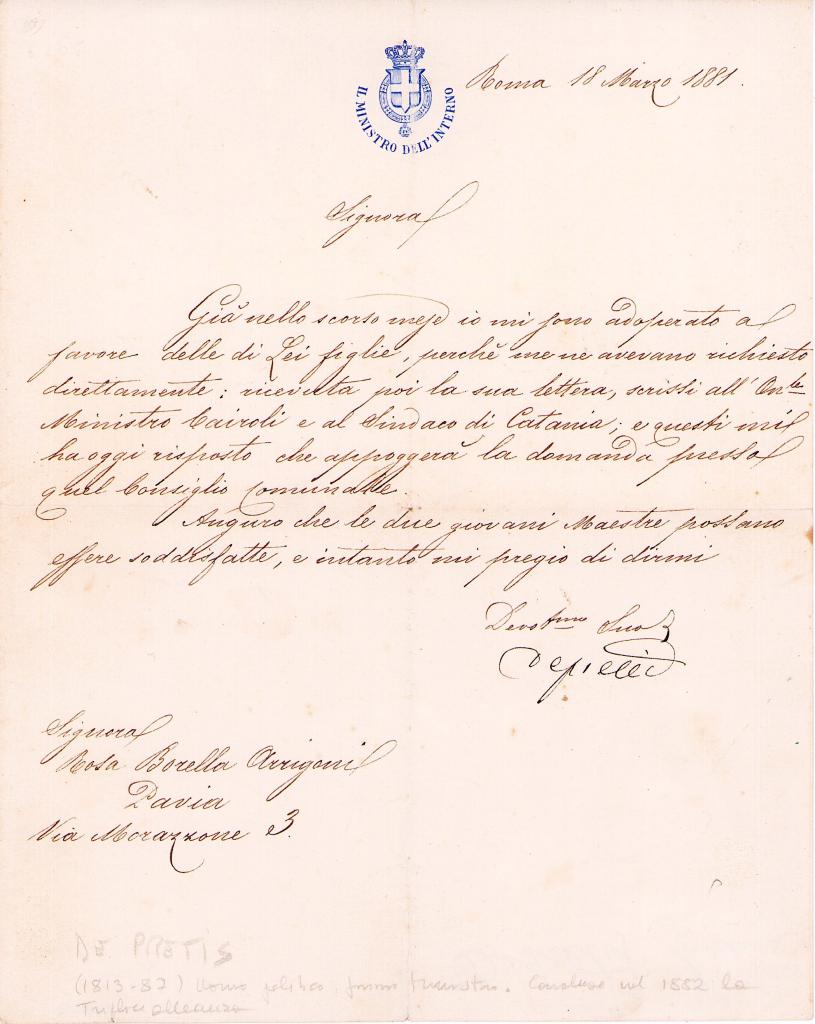 Roma 18 Marzo 1881.
IL MINISTRO DELL'INTERNO
Signora
Già nello scorso mese io mi sono adoperato a
favore delle di Lei figlie, perchè me ne avevano richiesto
direttamente; ricevuta poi la sua lettera, scrissi all'On.le
Ministro Cairoli e al Sindaco di Catania; e questi mi
ha oggi risposto che appoggerà la domanda presso
quel Consiglio comunale.
Auguro che le due giovani Maestre possano
essere soddisfatte, e intanto mi pregio di dirmi
Devotmo Suo
Depretis
Signora
Rosa Borella Arrigoni
Pavia
Via Morazzone 3.
DE PRETIS
(1813-87) Uomo politico, primo ministro. Concluse nel 1882 la
Triplice alleanza